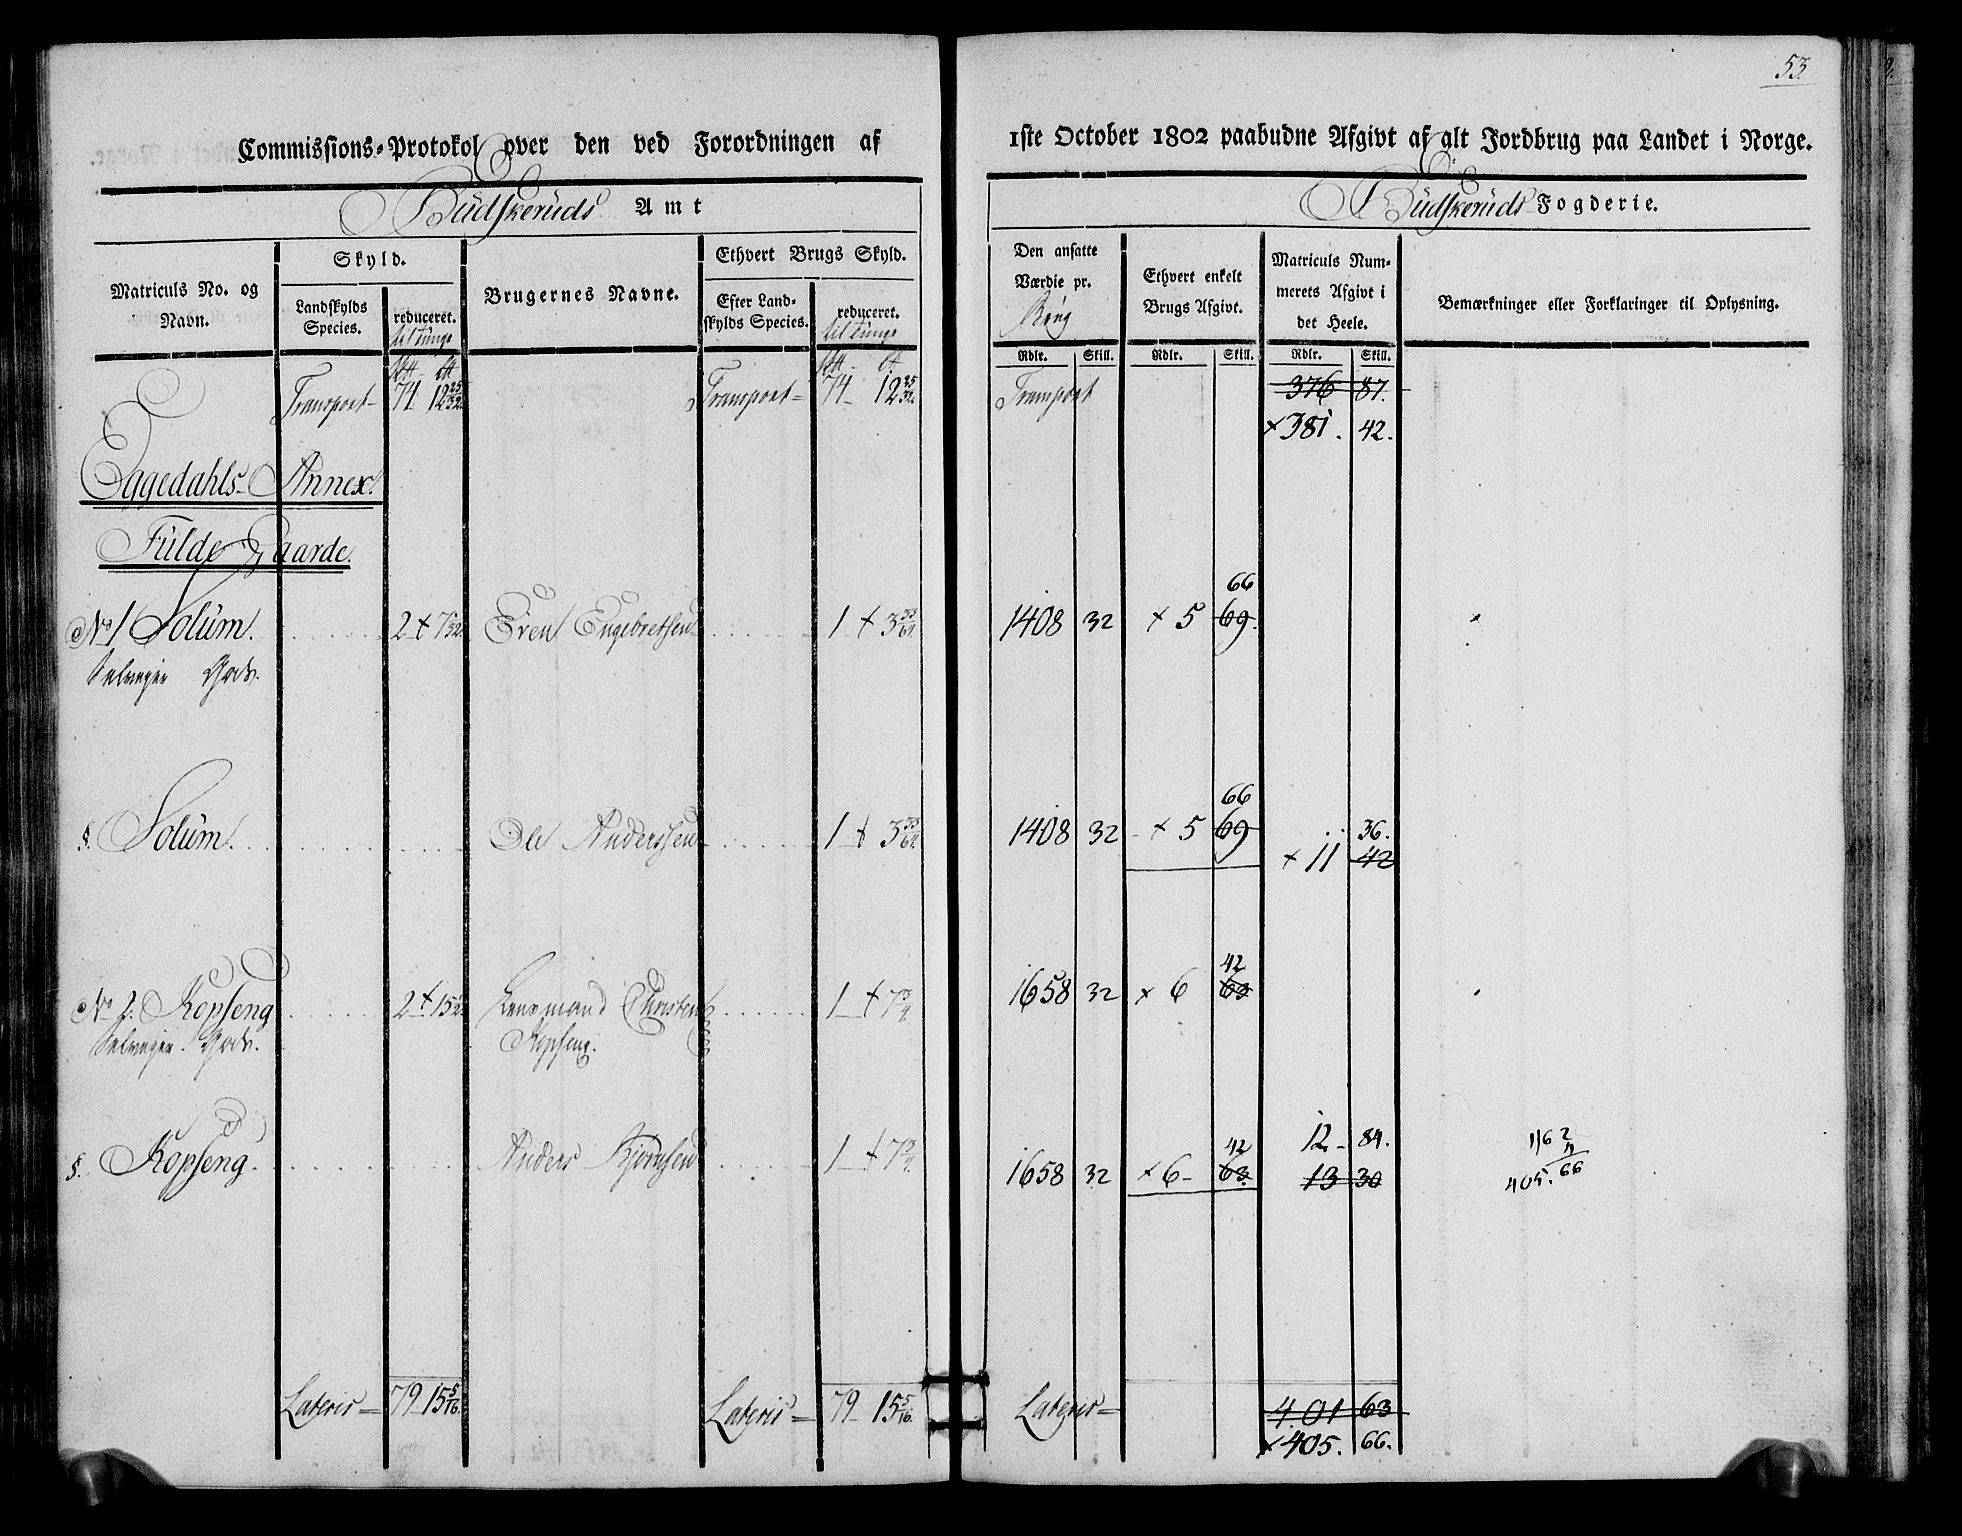 53.
Commissions-Protokol over den ved Forordningen af
1ste October 1802 paabudne Afgivt af alt Jordbrug paa Landet i Norge.
Budskeruds Amt
Budskeruds Fogderie.
Matriculs No. og Navn.
Skyld.
Landskylds Species.
reduceret. til tunge
Brugernes Navne.
Ethvert Brugs Skyld.
Efter Landskylds Species.
reduceret. til tunge
Den ansatte Værdie pr. Brug
Ethvert enkelt Brugs Afgivt.
Matriculs Nummerets Afgivt i det Heele.
Bemærkninger eller Forklaringer til Oplysning.
Rdlr. Skill. Rdlr. Skill. Rdlr. Skill.
Transport- 74 12 25/32 Transport- 74 12 25/32. Transport 376 87.
×381. 42.
Eggedahls Annex.
Fulde Gaarde.
66
No 1 Solum. 2 + 7 1/32 Even Engebretsen 1 + 3 33/64 1408 32 × 5 69.
Selveyer Gods.
66
§. Solum. Ole Anderssen 1 + 3 33/64 1408 32 × 5 69 36.
× 11 42
42
No 2. Kopseng 2 + 15 1/2 Lensmand Christen 1 + 7 3/4 1658 32 × 6 63
Selveyer Gods. Kopseng.
42 12 - 84. 1162
§. Kopseng. Anders Bjørnsen 1 + 7 3/4 1658 32 × 6 - 63. 13 30
405. 66
Lateris = 79 15 5/16. Lateris = 79 15 5/16. Lateris = 401 63
×405. 66.